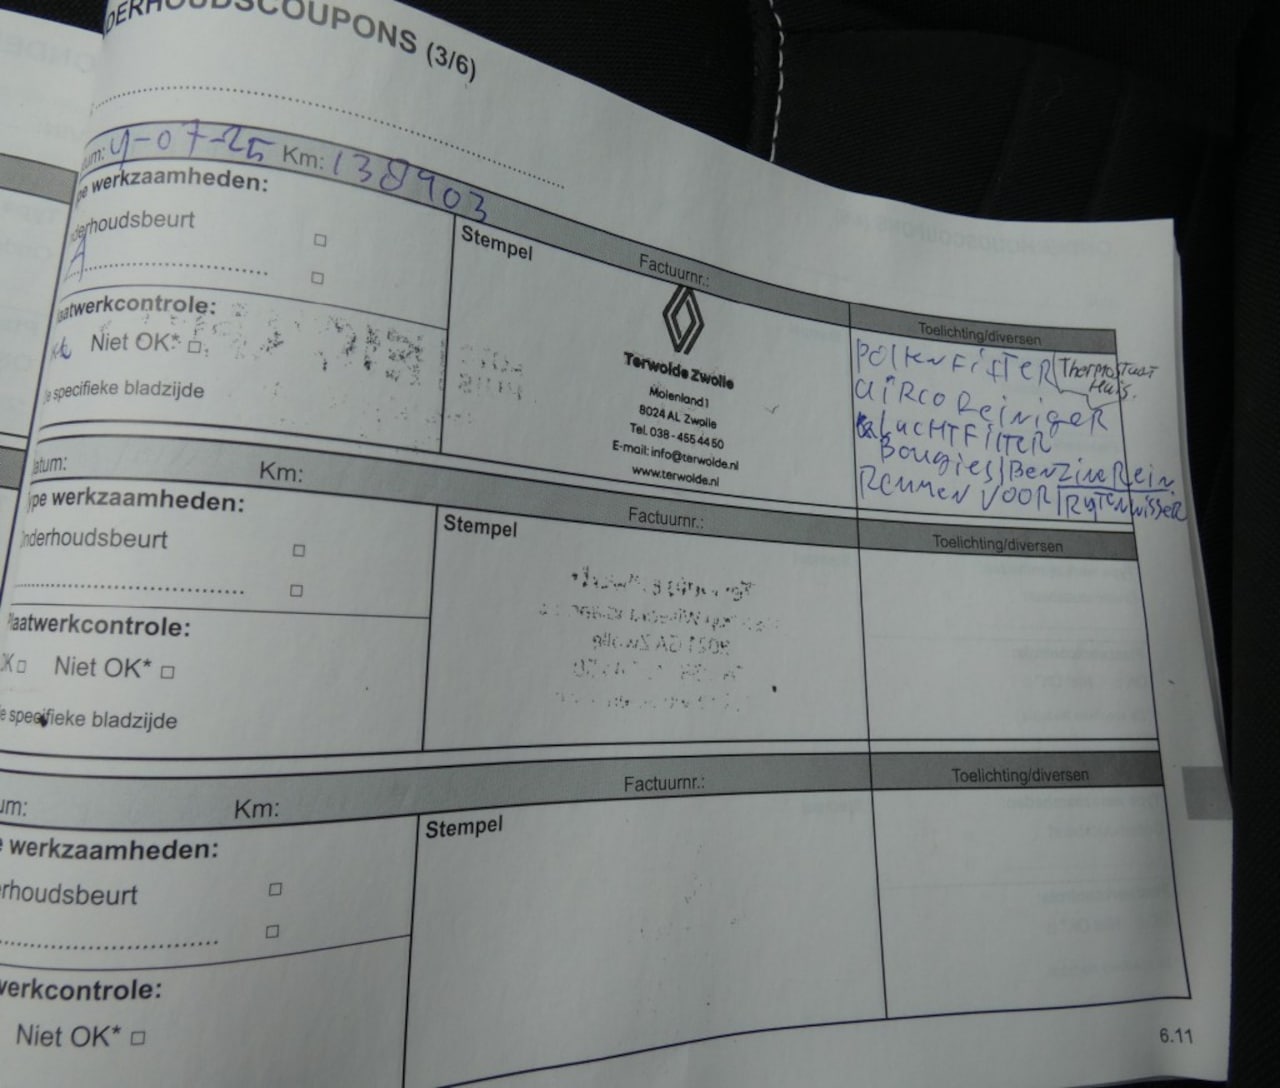 DERHOUDSCOUPONS (3/6)
um: 4-07-25 Km: 138903
pe werkzaamheden:
derhoudsbeurt
A
Stempel
Factuurnr.:
Toelichting/diversen
laatwerkcontrole:
Niet OK*
je specifieke bladzijde
Terwolde Zwolle
Molenland 1
8024 AL Zwolle
Tel. 038 - 455 44 50
E-mail: info@terwolde.nl
www.terwolde.nl
POLLENFILTER Thermostaat
Huis.
AIRCO Reiniger
LUCHTFILTER
Bougies Benzine Rein.
Remmen VOOR Ruitenwisser
atum: Km:
ype werkzaamheden:
Onderhoudsbeurt
Stempel
Factuurnr.:
Toelichting/diversen
Plaatwerkcontrole:
OK Niet OK*
e specifieke bladzijde
8021 GA Zwolle
um: Km:
e werkzaamheden:
erhoudsbeurt
Stempel
Factuurnr.:
Toelichting/diversen
werkcontrole:
Niet OK*
6.11